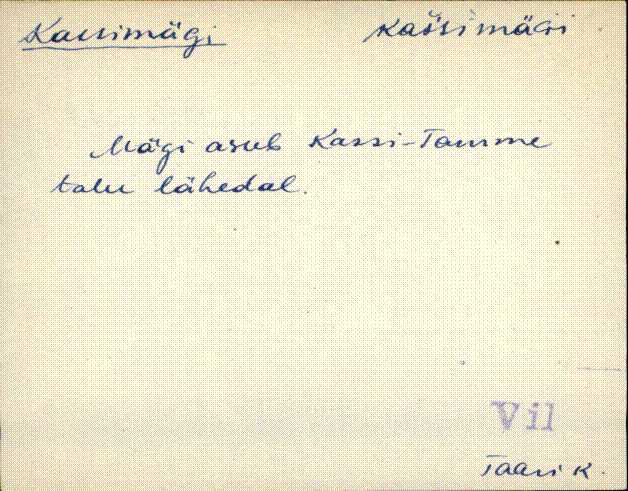 Kassimägi kaš̀simäGi
Mägi asub Kassi-Tamme
talu lähedal.
Vil
Taari k.